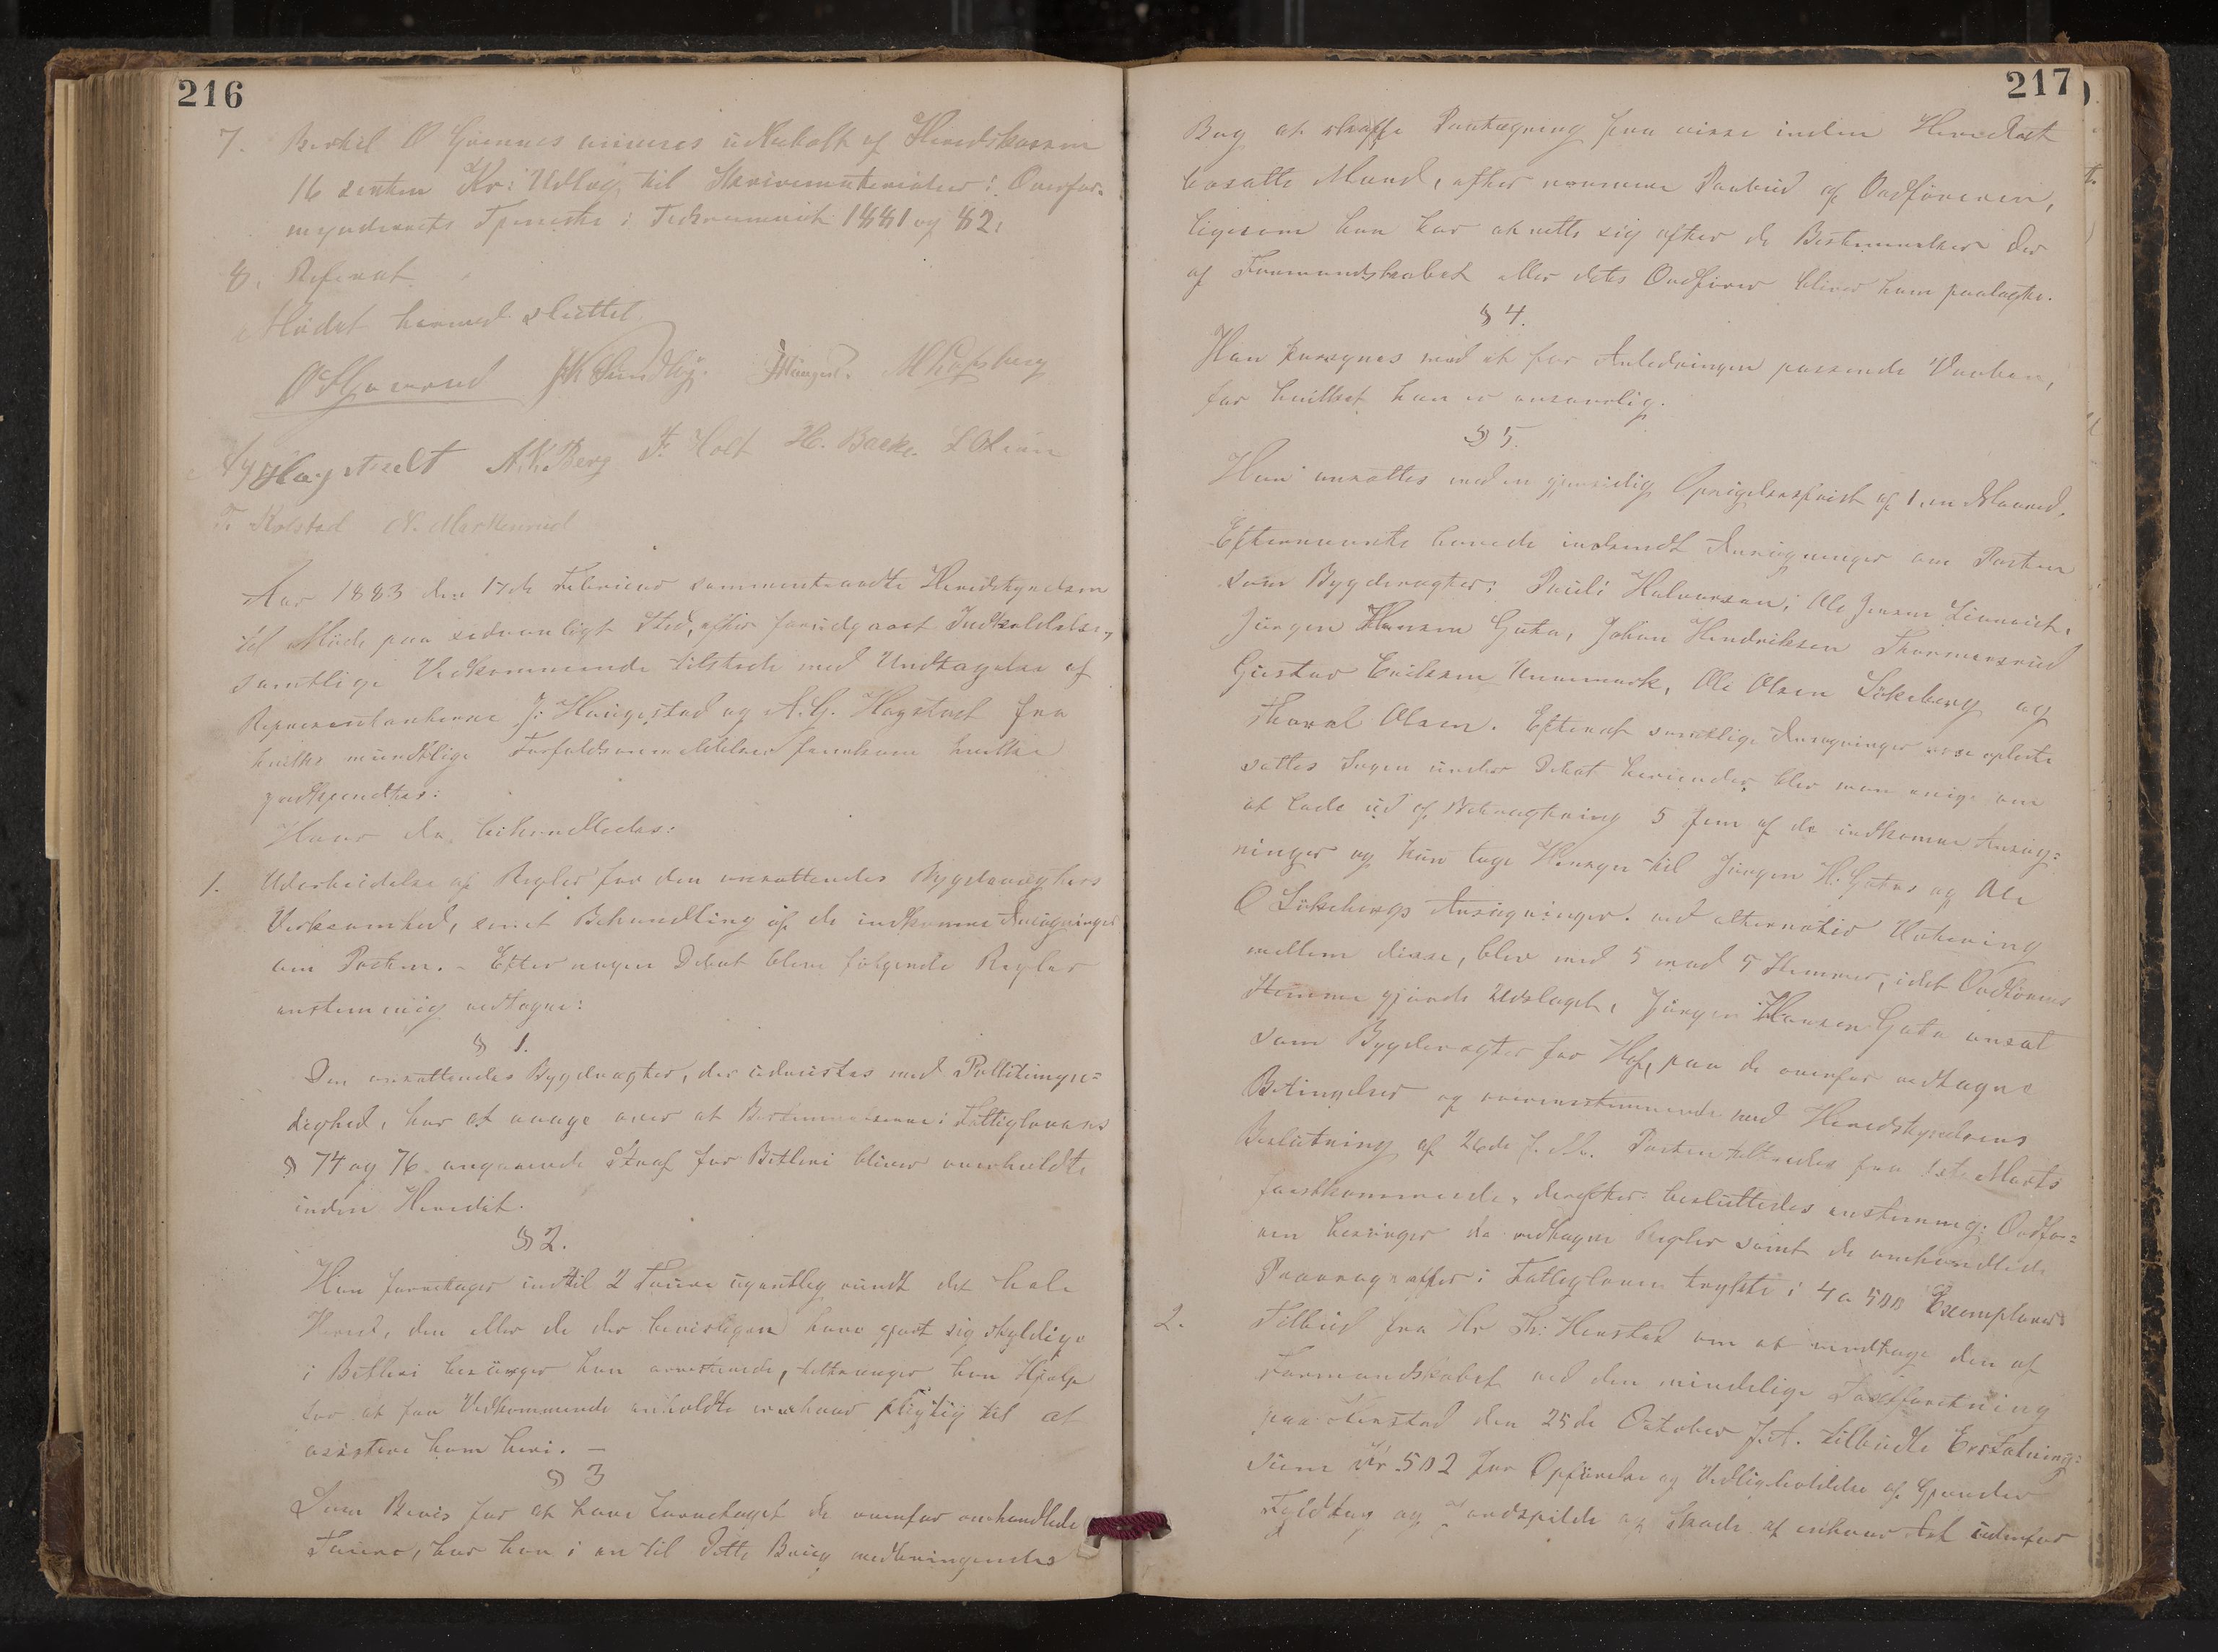 216
7. Bertil O Grønnes anvises udbetalt af Heredskassen
16 sexten Kr: Udlæg til Skrivematerialier i Overfor-
mynderiets Tjeneste i Tidsrummet 1881 og 82.
8. Referat.
Mødet hermed sluttet
H. Sundby.
A. K. Berg F. Holt H. Backe. L Olsen
F. Kolstad N. Markerud
Aar 1883 den 17de Februar sammentraadte Heredstyrelsen
til Møde paa sedvanligt Sted, efter forudgaaet Indkaldelse,
samtlige Vedkommende tilstede med Undtagelse af
Repræsentanterne J: Haugestad og A. G. Hagstad fra
hvilke mundtlige Forfaldsanmeldelser fremkom hvilke
godkjendtes:
Hvor da behandledes:
1. Udarbeidelse af Regler for den ansættendes Bygdevægters
Virksomhed, samt Behandling af de indkomne Ansøgninger
om Posten. - Efter nogen Debat bleve følgende Regler
enstemmig vedtagne:
§ 1.
Den ansættendes Bygdevagter, der udrustes med Politimyn=
dighed, har at vaage over at Bestemmelserne i Fattiglovens
§ 74 og 76 angaaende Straf for Betleri bliver overholdte
inden Heredet.
§ 2.
Han foretager indtil 2 Toure ugentlig rundt det hele
Hered, den eller de der bevisligen have gjort sig skyldige
i Betleri besørger han arresterede, tiltrænger han Hjelp
for at faa Vedkommende anholdte er enhver pligtig til at
assistere ham heri. -
§ 3
Som Bevis for at have foretaget de ovenfor omhandlede
Toure, har han i en til dette Brug medbringendes
217
Bog at skaffe Paategning fra visse inden Heredet
bosatte Mænd, efter nærmere Paabud af Ordføreren,
ligesom han har at rette sig efter de Bestemmelser der
af Formandskabet eller dets Ordfører bliver ham paalagte.
§ 4.
Han forsynes med et for Anledningen passende Vaaben,
for hvilket han er ansvarlig.
§ 5.
Han ansættes med en gjensidig Opsigelsesfrist af 1, en Maaned.
Efternævnte havede indsendt Ansøgninger om Posten
som Bygdevagter: Pauli Halvorsen; Ole Jensen
Jørgen Hansen Gata, Johan Hendriksen Thormersrud
Gustav Eriksen Unnemark, Ole Olsen Søkeberg og
Thoral Olsen. Efterat samtlige Ansøgninger vare oplæste
sattes Sagen under Debat herunder blev man enige om
at lade ud af Betragtning 5 fem af de indkomne Ansøg:
ninger og kun tage Hensyn til Jørgen H. Gatas og Ole
O Søkebergs Ansøgninger. ved alternativ Votering
mellem disse, blev med 5 mod 5 Stemmer, idet Ordførens
Stemme gjørde Udslaget, Jørgen Hansen Gata ansat
som Bygdevagter for Hof, paa de ovenfor vedtagne
Betingelser og overensstemmende med Heredstyrelsens
Beslutning af 26de f. M. Posten tiltrædes fra 1ste Marts
førstkommende, derefter besluttedes enstemmig; Ordfø=
ren besørger de vedtagne Regler samt de omhandlede
Paaragraffer i Fattigloven trykte i 4 a 500 Exemplarer
2. Tilbud fra Hr Th: Henstad om at modtage den af
Formandskabet ved den mindelige Taxtforretning
paa Henstad den 25de October f. A. tilbudte Erstatning:
sum Kr 502 for Opførelse og Vedligeholdelse af Gjærder
Fyldtag og Jordspilde og Skade af enhver Art udenfor